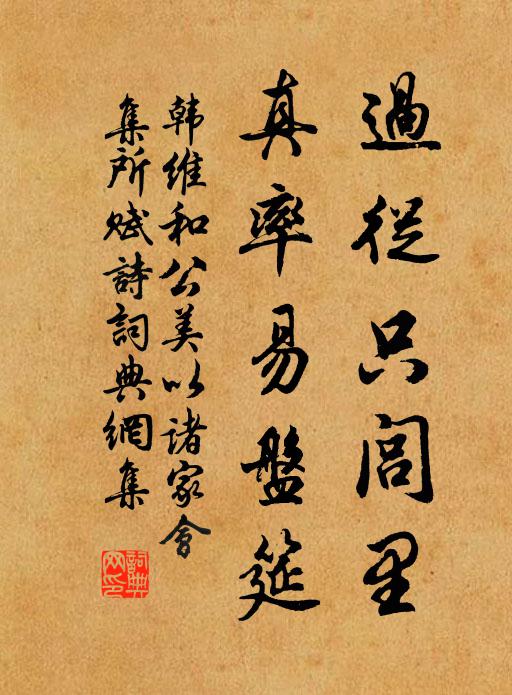 過從只閭里
真率易盤筵
韩維和公美以諸家會
集所赋詩詞典網集
詞典
网印